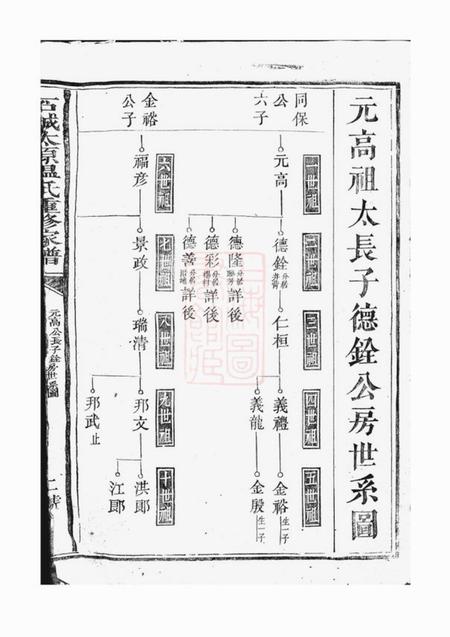 元高祖太長子德銓公房世系圖
同保公六子
元高
德銓
德隆 詳後
德彩 詳後
德善 詳後
仁桓
義禮
義龍
金裕 生一子
金殷 生一子
二世祖
三世祖
四世祖
五世祖
金裕公子
福彦
景政
瑞清
邦文
邦武 止
洪郎
江郎
六世祖
七世祖
八世祖
九世祖
十世祖
石城太原溫氏重修家譜
元高公長子銓房世系圖